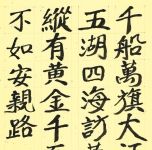 千船萬旗大江
五湖四海訪
縱有黃金千
不如安親路